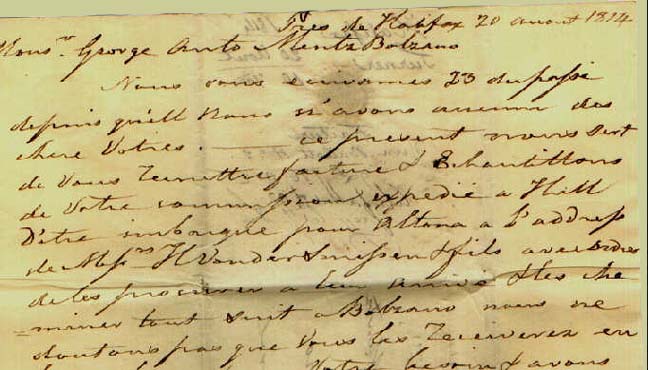 Près de Halifax 20 aout 1814
Monsr. George Anto Mentz Bolzano
Nous vous ecrivames 23 du passé
depuis qu'ell Nous n'avons aucun des
chere Votres. — ce present nous sert
de Vous remettre facture & Echantillons
de Votre commission expedié a Hill
D'etre imbarqué pour Altona a l'addresse
de Messrs H Vander Smissen & fils avec Ordres
de les procurer a leur arrivé & les che
-miner tout suit a Bolzano nous ne
doutons pas que Vous les recevrez en
Votre besoin & avons